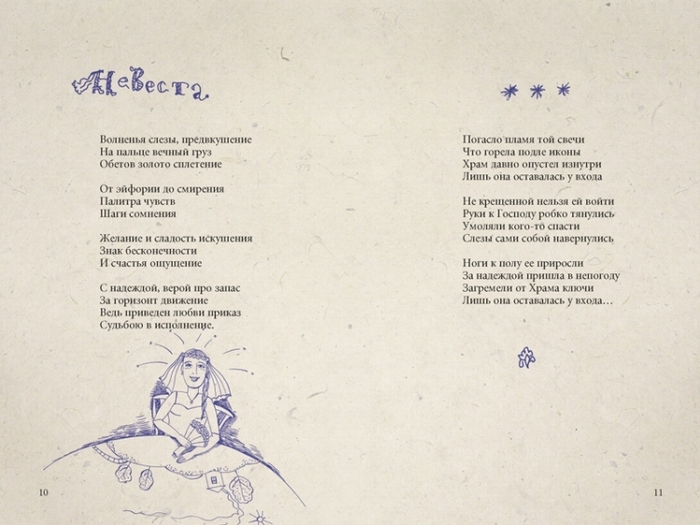 Невеста
Волненья слезы, предвкушение
На пальце вечный груз
Обетов золото сплетение
От эйфории до смирения
Палитра чувств
Шаги сомнения
Желание и сладость искушения
Знак бесконечности
И счастья ощущение
С надеждой, верой про запас
За горизонт движение
Ведь приведен любви приказ
Судьбою в исполнение.
10
* * *
Погасло пламя той свечи
Что горела подле иконы
Храм давно опустел изнутри
Лишь она оставалась у входа
Не крещенной нельзя ей войти
Руки к Господу робко тянулись
Умоляли кого-то спасти
Слезы сами собой навернулись
Ноги к полу ее приросли
За надеждой пришла в непогоду
Загремели от Храма ключи
Лишь она оставалась у входа…
11